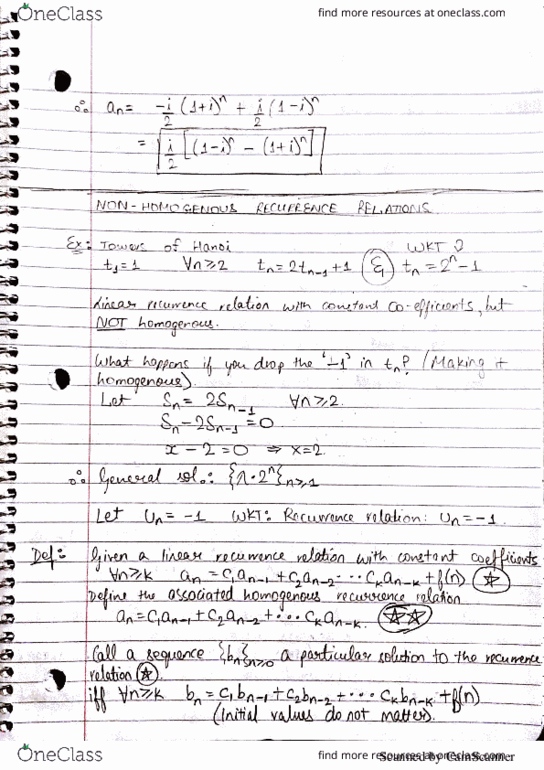 OneClass
find more resources at oneclass.com
∴ aₙ = -i/2 (1+i)ⁿ + i/2 (1-i)ⁿ
= i/2 [(1-i)ⁿ - (1+i)ⁿ]
NON-HOMOGENOUS RECURRENCE RELATIONS
Ex: Towers of Hanoi WKT
t₁=1 ∀n≥2 tₙ=2tₙ₋₁+1 & tₙ=2ⁿ-1
Linear recurrence relation with constant co-efficients, but
NOT homogenous.
What happens if you drop the '-1' in tₙ? (Making it
homogenous).
Let Sₙ= 2Sₙ₋₁ ∀n≥2
Sₙ-2Sₙ₋₁=0
x-2=0 ⇒ x=2
∴ General sol.: {λ·2ⁿ}ₙ≥₁
Let Uₙ=-1 WKT: Recurrence relation: Uₙ=-1.
Def: Given a linear recurrence relation with constant coefficients
∀n≥k aₙ=c₁aₙ₋₁+c₂aₙ₋₂...cₖaₙ₋ₖ+f(n) ☆
Define the associated homogenous recurrence relation
aₙ=c₁aₙ₋₁+c₂aₙ₋₂+...cₖaₙ₋ₖ. ☆☆
Call a sequence {bₙ}ₙ≥₀ a particular solution to the recurrence
relation ☆
iff ∀n≥k bₙ=c₁bₙ₋₁+c₂bₙ₋₂+...cₖbₙ₋ₖ+f(n)
(Initial values do not matter).
OneClass
find more resources at oneclass.com
Scanned by CamScanner